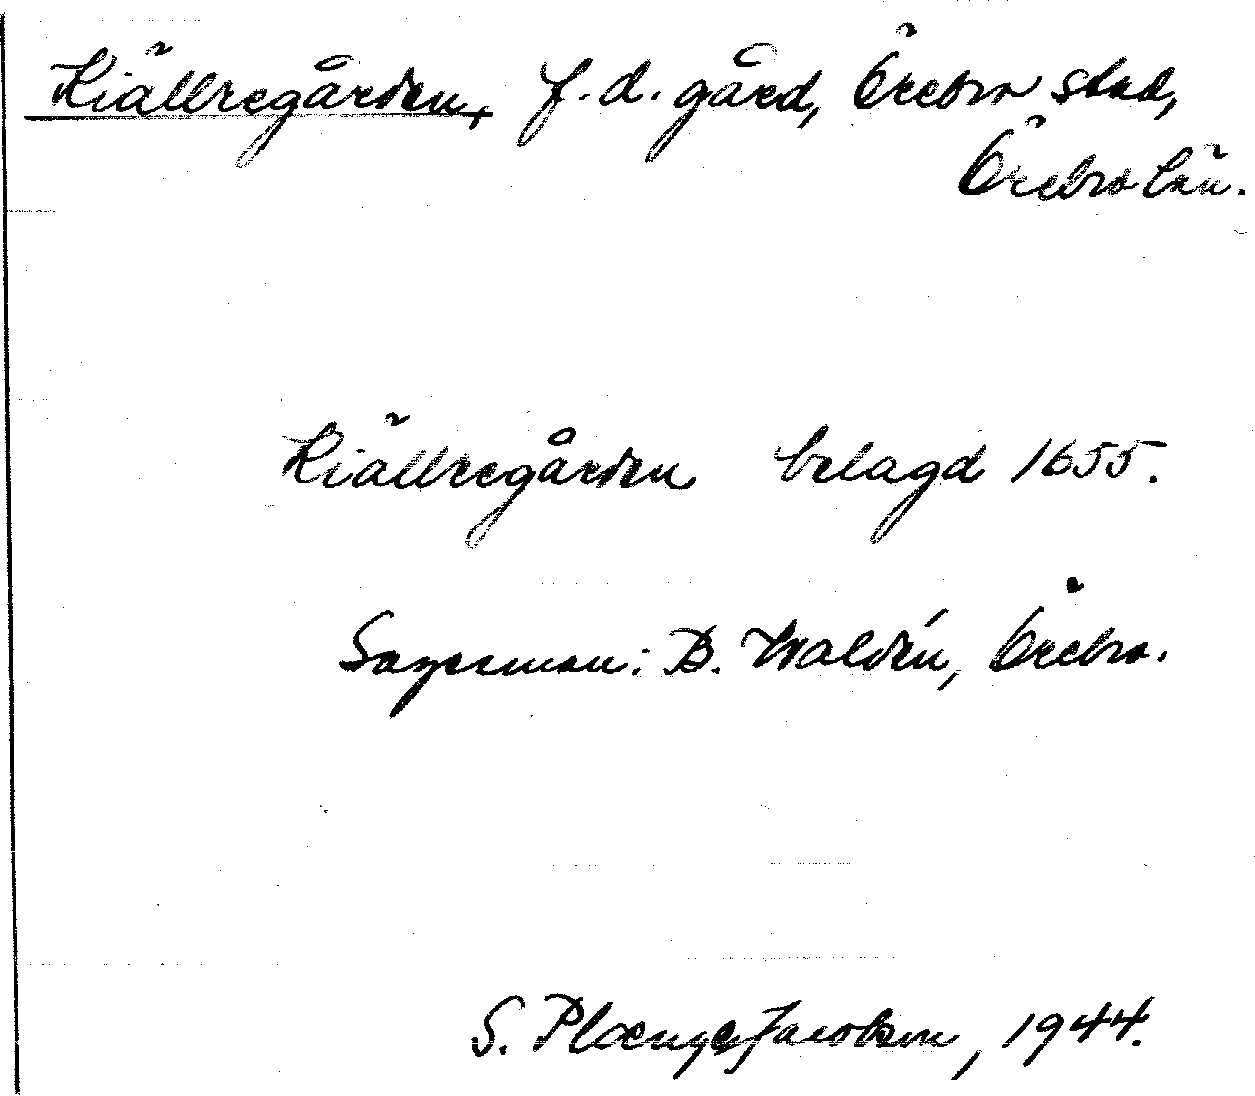 Kiällregården, f.d. gård, Örebro stad,
Örebro län.
Kiällregården belagd 1655.
Sagesman: B. Waldén, Örebro.
S. Plœnge Jacobson, 1944.